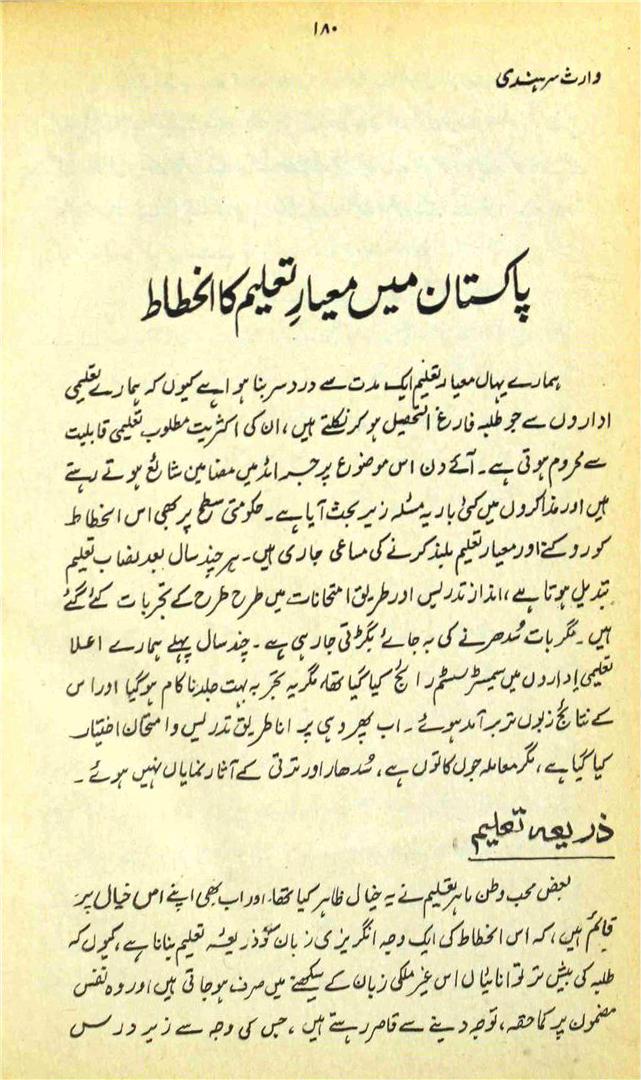 ۱۸۰
وارث سرہندی
پاکستان میں معیارِ تعلیم کا انحطاط
ہمارے یہاں معیار تعلیم ایک مدت سے درد سر بنا ہوا ہے کیوں کہ ہمارے تعلیمی
اداروں سے جو طلبہ فارغ التحصیل ہو کر نکلتے ہیں، ان کی اکثریت مطلوب تعلیمی قابلیت
سے محروم ہوتی ہے۔ آئے دن اس موضوع پر جرائد میں مضامین شائع ہوتے رہتے
ہیں اور مذاکروں میں کئی بار یہ مسئلہ زیر بحث آیا ہے۔ حکومتی سطح پر بھی اس انحطاط
کو روکنے اور معیار تعلیم بلند کرنے کی مساعی جاری ہیں۔ ہر چند سال بعد نصاب تعلیم
تبدیل ہوتا ہے، انداز تدریس اور طریق امتحانات میں طرح طرح کے تجربات کئے گئے
ہیں۔ مگر بات سُدھرنے کی بہ جائے بگڑتی جا رہی ہے۔ چند سال پہلے ہمارے اعلا
تعلیمی اداروں میں سمیسٹر سسٹم رائج کیا گیا تھا، مگر یہ تجربہ بہت جلد ناکام ہو گیا اور اس
کے نتائج زبوں تر برآمد ہوئے۔ اب پھر وہی پرانا طریق تدریس و امتحان اختیار
کیا گیا ہے، مگر معاملہ جوں کا توں ہے، سُدھار اور ترقی کے آثار نمایاں نہیں ہوئے۔
ذریعہ تعلیم
بعض محب وطن ماہر تعلیم نے یہ خیال ظاہر کیا تھا، اور اب بھی اپنے اس خیال پر
قائم ہیں، کہ اس انحطاط کی ایک وجہ انگریزی زبان کو ذریعۂ تعلیم بنانا ہے، کیوں کہ
طلبہ کی بیش تر توانائیاں اس غیر ملکی زبان کے سیکھنے میں صرف ہو جاتی ہیں اور وہ نفس
مضمون پر کما حقہ، توجہ دینے سے قاصر رہتے ہیں، جس کی وجہ سے زیر درس